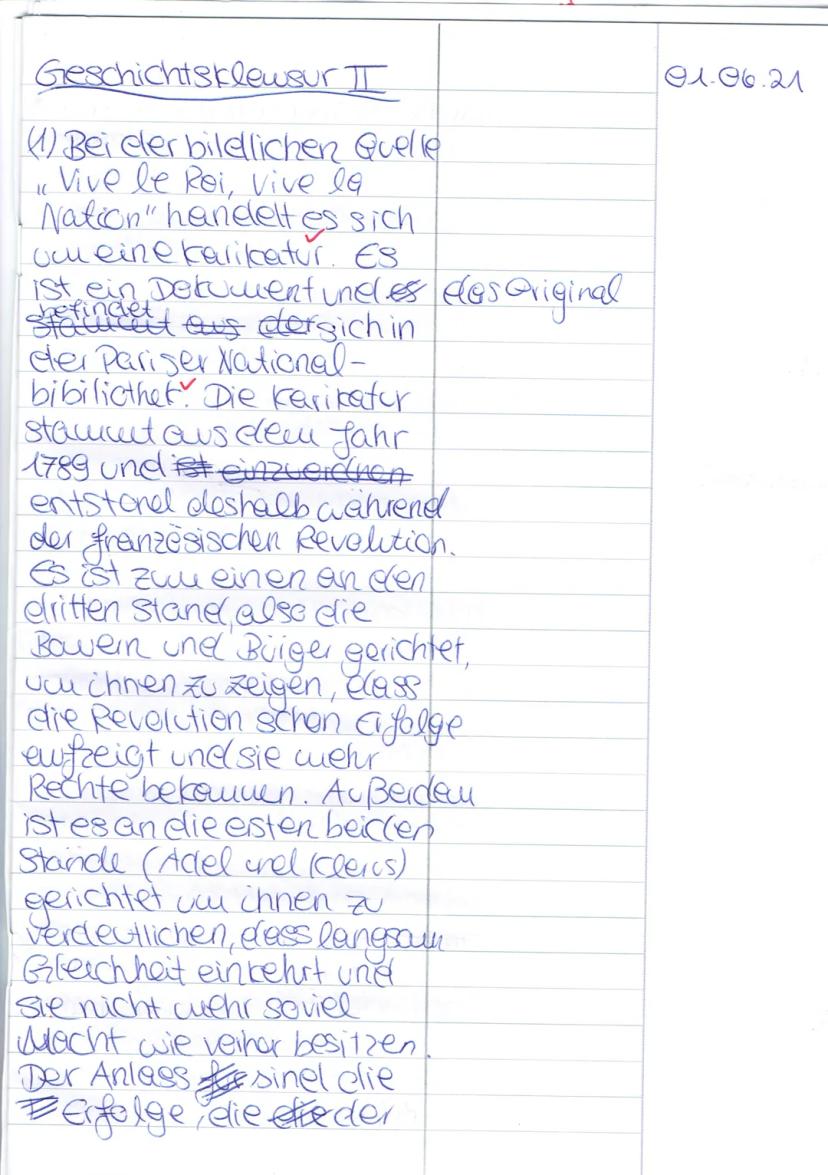 Geschichtsklausur II 01.06.21
(1) Bei der bildlichen Quelle
„Vive le Roi, vive la
Nation" handelt es sich
um eine Karikatur. Es
ist ein Dokument und es das Original
befindet
stammt aus der sich in
der Pariser National-
bibiliothek. Die Karikatur
stammt aus dem Jahr
1789 und ist einzuordnen
entstand deshalb während
der französischen Revolution.
Es ist zum einen an den
dritten Stand, also die
Bauern und Bürger gerichtet,
um ihnen zu zeigen, dass
die Revolution schon Erfolge
aufzeigt und sie mehr
Rechte bekommen. Außerdem
ist es an die ersten beiden
Stände (Adel und Klerus)
gerichtet um ihnen zu
verdeutlichen, dass langsam
Gleichheit einkehrt und
sie nicht mehr soviel
Macht wie vorher besitzen.
Der Anlass sind die
Erfolge, die die der